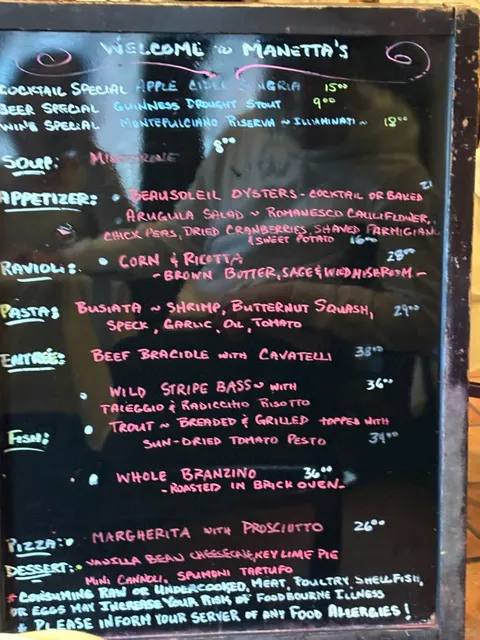 WELCOME ~ MANETTA'S
COCKTAIL SPECIAL APPLE CIDER SANGRIA 15⁰⁰
BEER SPECIAL GUINNESS DROUGHT STOUT 9⁰⁰
WINE SPECIAL MONTEPULCIANO RISERVA ~ ILLUMINATI ~ 18⁰⁰
SOUP: MINESTRONE 8⁰⁰
APPETIZER: • BEAUSOLEIL OYSTERS - COCKTAIL OR BAKED 21
ARUGULA SALAD ~ ROMANESCO CAULIFLOWER,
CHICK PEAS, DRIED CRANBERRIES, SHAVED PARMIGIAN
& SWEET POTATO 16⁰⁰
RAVIOLI: • CORN & RICOTTA 28⁰⁰
- BROWN BUTTER, SAGE & WILD MUSHROOM -
PASTA: BUSIATA ~ SHRIMP, BUTTERNUT SQUASH, 29⁰⁰
SPECK, GARLIC, OIL, TOMATO
ENTRÉE: BEEF BRACIOLE WITH CAVATELLI 38⁰⁰
• WILD STRIPE BASS ~ WITH 36⁰⁰
TALEGGIO & RADICCHIO RISOTTO
FISH: • TROUT ~ BREADED & GRILLED TOPPED WITH
SUN-DRIED TOMATO PESTO 34⁰⁰
• WHOLE BRANZINO 36⁰⁰
- ROASTED IN BRICK OVEN -
PIZZA: • MARGHERITA WITH PROSCIUTTO 26⁰⁰
DESSERT: • VANILLA BEAN CHEESECAKE, KEY LIME PIE
MINI CANNOLI, SPUMONI TARTUFO
* CONSUMING RAW OR UNDERCOOKED, MEAT, POULTRY SHELLFISH,
OR EGGS MAY INCREASE YOUR RISK OF FOODBOURNE ILLNESS
* PLEASE INFORM YOUR SERVER OF ANY FOOD ALLERGIES!